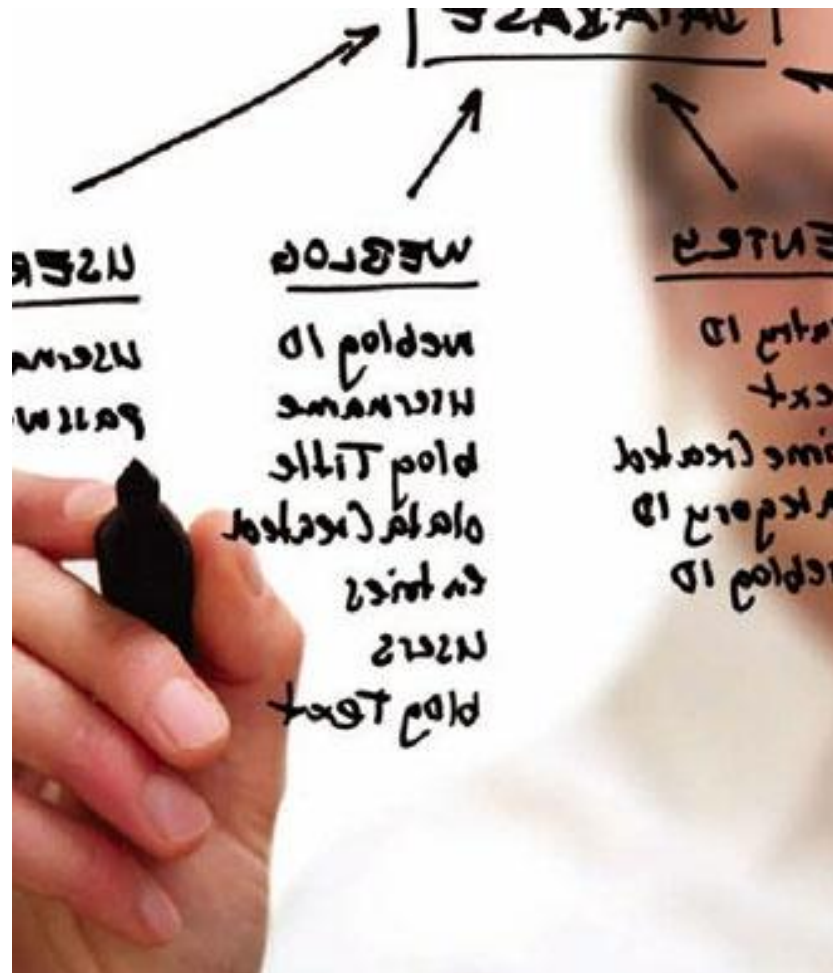 DATABASE
USER
userna
passw
WEBLOG
weblog ID
username
blog Title
dataCreated
entries
users
blog Text
ENTRY
ntry ID
ext
imeCreated
ategory ID
eblog ID